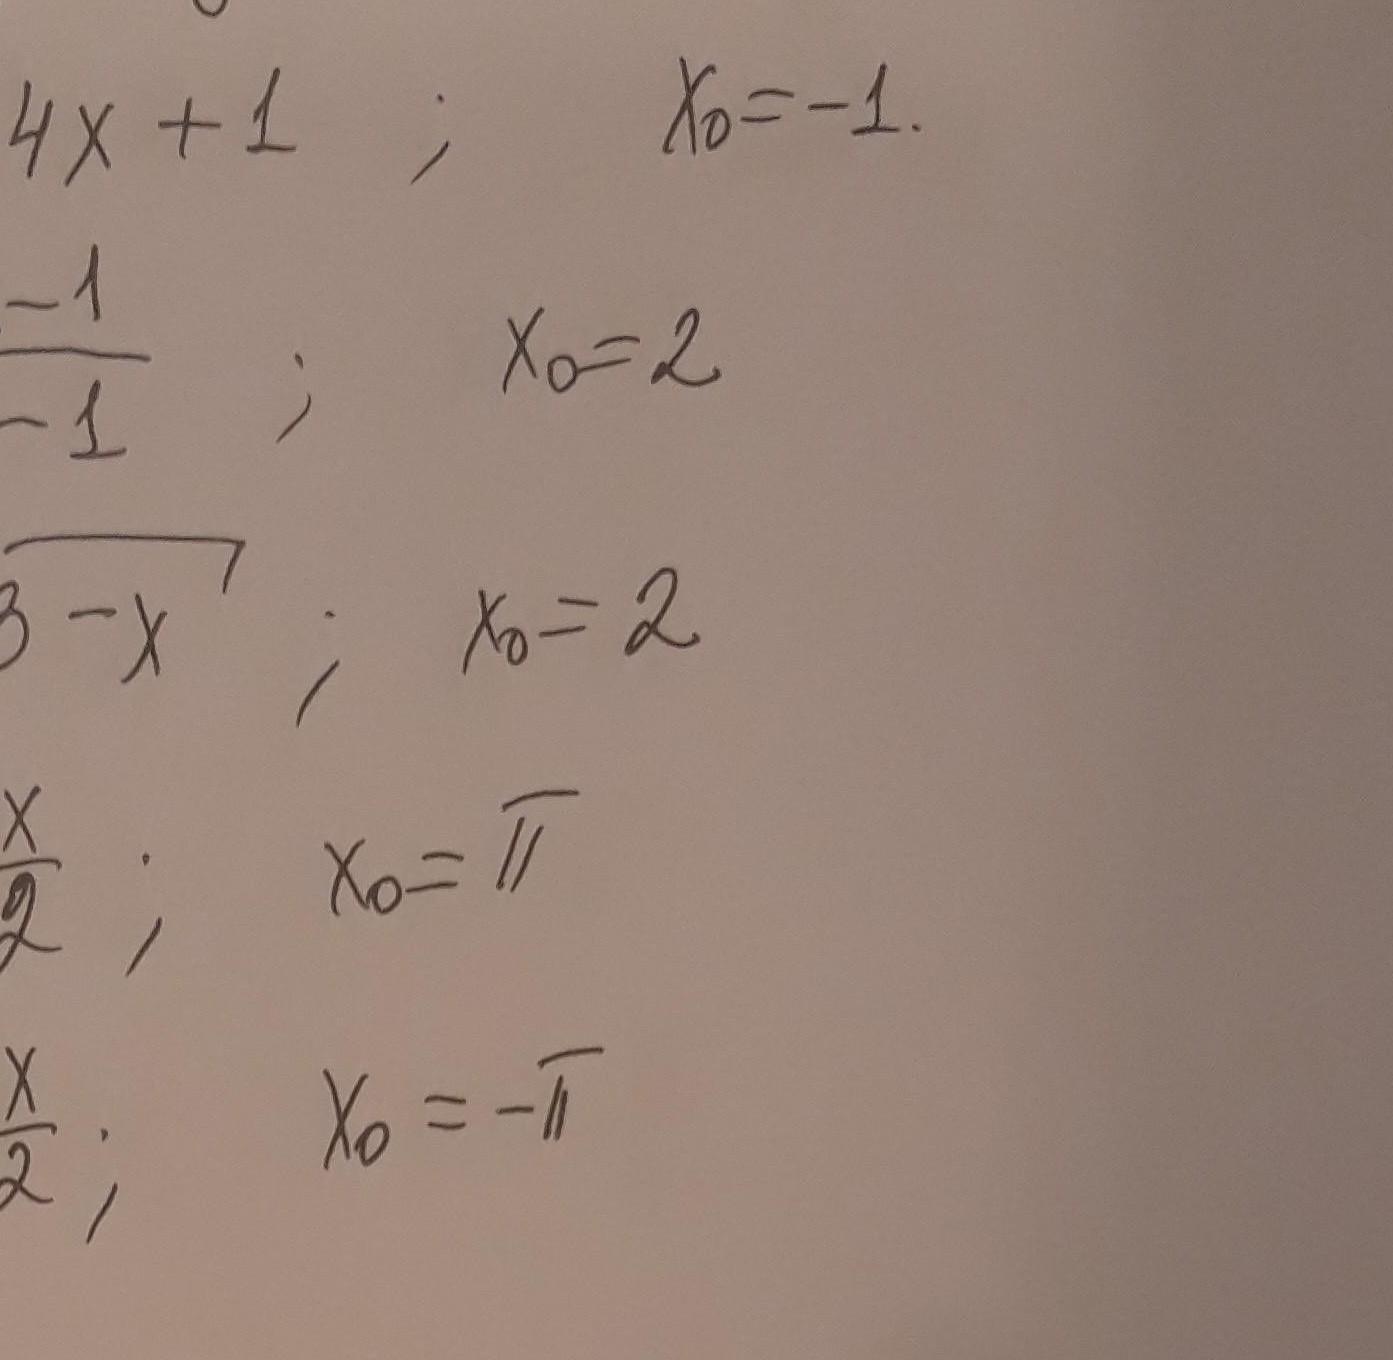 4x + 1 ; x₀ = -1.
-1
-1 ; x₀ = 2
3 - x ; x₀ = 2
x/2 ; x₀ = π
x/2 ; x₀ = -π